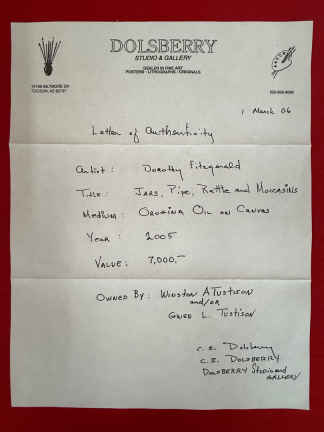 DOLSBERRY
STUDIO & GALLERY
DEALER IN FINE ART
POSTERS · LITHOGRAPHS · ORIGINALS
TUCSON, AZ
1 March 06
Letter of Authenticity
Artist: Dorothy Fitzgerald
Title: Jars, Pipe, Rattle and Moccasins
Medium: Original Oil on Canvas
Year: 2005
Value: 7,000.—
Owned By: Winston A Tustison
and/or
Gwed L. Tustison
C. E. Dolsberry
C. E. DOLSBERRY
DOLSBERRY Studio and
GALLERY